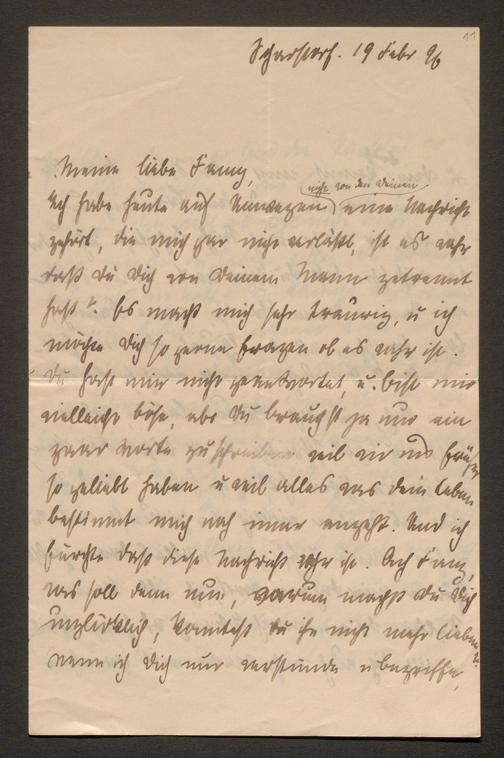 11
Scharstorf. 19 Febr 96
Meine liebe Fanny,
nicht von den Deinen
Ich habe heute auf Umwegen eine Nachricht
gehört, die mich gar nicht verläßt, ist es wahr
daß Du Dich von Deinem Mann getrennt
hast? Es macht mich sehr traurig, u ich
möchte Dich so gerne fragen ob es wahr ist.
Du hast mir nicht geantwortet, u. bist mir
vielleicht böse, aber Du brauchst ja nur ein
paar Worte zu schreiben weil wir uns früher
so geliebt haben u weil alles was dein Leben
bestimmt mich noch immer angeht. Und ich
fürchte daß diese Nachricht wahr ist. Ach Fanny,
was soll denn nun, warum machst Du Dich
unglücklich, konntest Du ihn nicht mehr lieben?
wenn ich Dich nur verstünde u begriffe,